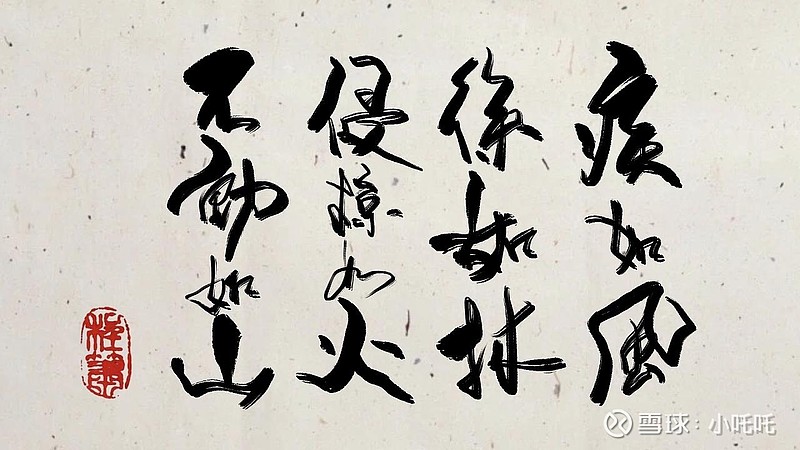 疾如風
徐如林
侵掠如火
不動如山
雪球:小吒吒